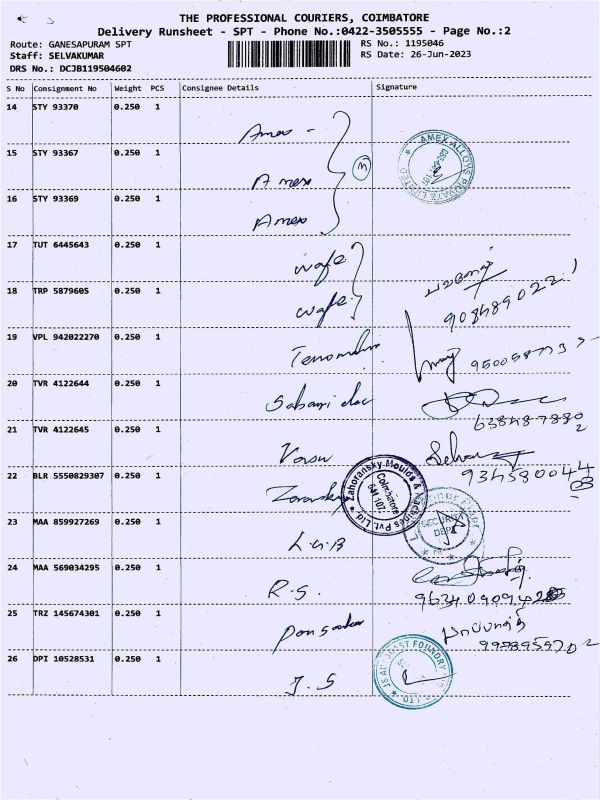 THE PROFESSIONAL COURIERS, COIMBATORE
Delivery Runsheet - SPT - Phone No.:0422-3505555 - Page No.:2
Route: GANESAPURAM SPT
RS No.: 1195046
Staff: SELVAKUMAR
RS Date: 26-Jun-2023
DRS No.: DCJB119504602
S No Consignment No Weight PCS Consignee Details Signature
14 STY 93370 0.250 1 Amex -
AMEX ALLOYS PRIVATE LIMITED
15 STY 93367 0.250 1 Amex
3
16 STY 93369 0.250 1 Amex
17 TUT 6445643 0.250 1 wafe
18 TRP 5879605 0.250 1 wafe
19 VPL 942022270 0.250 1
20 TVR 4122644 0.250 1
6384878802
21 TVR 4122645 0.250 1 Vasu Selva
9345800444
22 BLR 5550829307 0.250 1
Zahoransky Moulds & Machines Pvt. Ltd.
Coimbatore
641 107.
SECURITY
DEPT
23 MAA 859927269 0.250 1 L.G.B
24 MAA 569034295 0.250 1 R.S.
25 TRZ 145674301 0.250 1
26 DPI 10528531 0.250 1 J.S